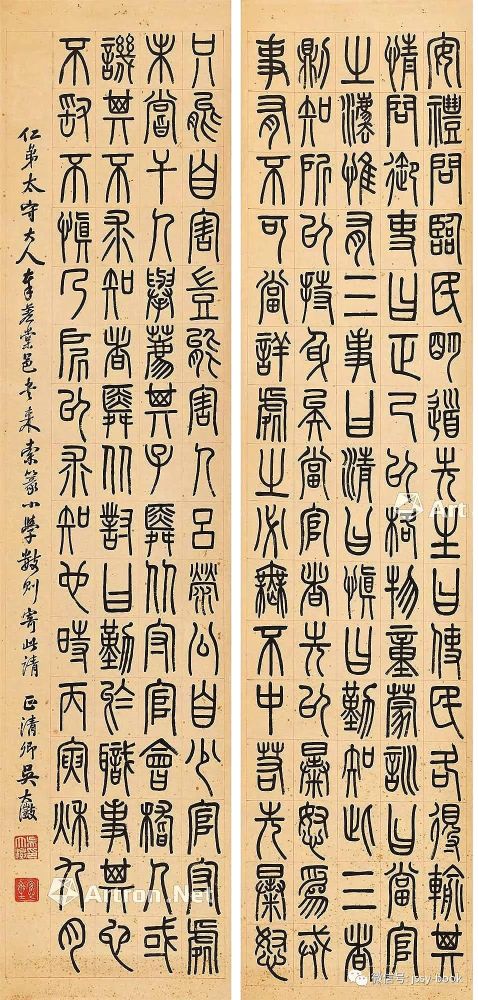 安禮問臨民明道先生曰使民各得輸其
情問御吏曰正己以格物童蒙訓曰當官
之灋惟有三事曰清曰慎曰勤知此三者
則知所以持身矣當官者先以暴怒為戒
事有不可當詳處之必無不中若先暴怒
只能自害豈能害人呂榮公自少官守處
未嘗干人舉薦其子舜從守官會稽人或
譏其不求知者舜從對曰勤於職事其它
不敢不慎乃所以求知也時丙寅秋九月
仁弟太守大人棠邑書來索篆小學數則寄此請正清卿吳大澂
Artron.Net
Art
微信号: jssy-book